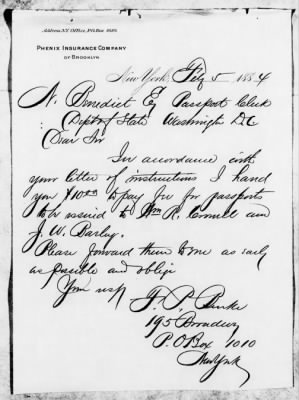 Address, N.Y. Office, P.O. Box
PHENIX INSURANCE COMPANY
OF BROOKLYN
New York, Feby 5 1884
N. Benedict Esq Passport Clerk
Dept of State Washington D.C
Dear Sir
In accordance with
your letter of instructions I hand
you $10.00 to pay for passports
to be issued to Wm R. and
J. W.
Please forward them to me as early
as possible and oblige
Your resp
F. P.
195 Broadway
P.O Box 1010
New York